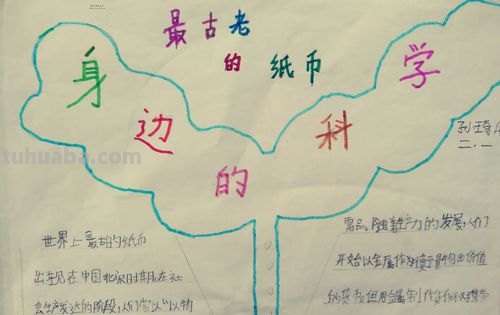 最古老
的纸币
身边的科学
二.一
世界上最古的纸币
出现在中国北宋时期,在社
会生产发达的阶段,人们常以“以物
需品,随着生产力的发展,人们
开始以金属作为衡量物品价值
的货币,但用金属制作货币不
tuhuaba.com